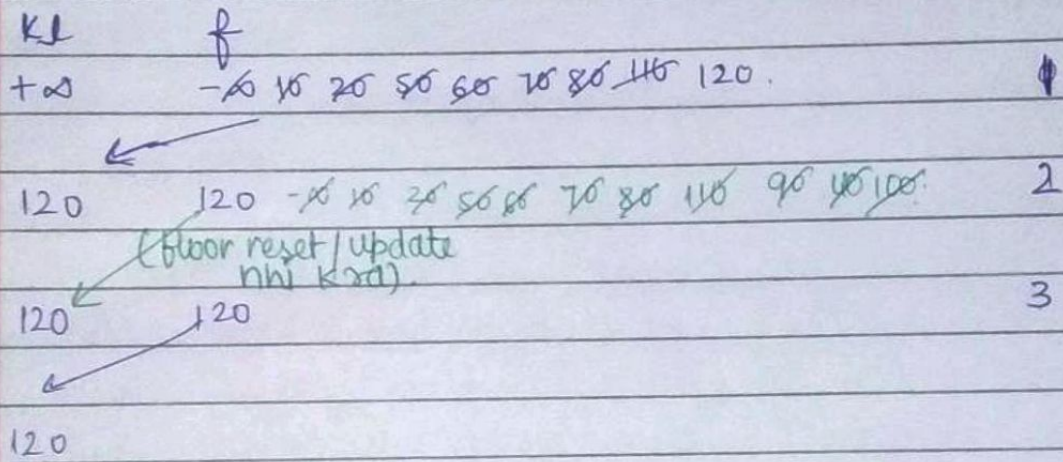 Kl f
+∞ -∞ 10 20 50 60 70 80 110 120. 1
120 120 -∞ 10 20 50 60 70 80 110 90 40 100. 2
(floor reset/update
nhi kra).
120 120 3
120